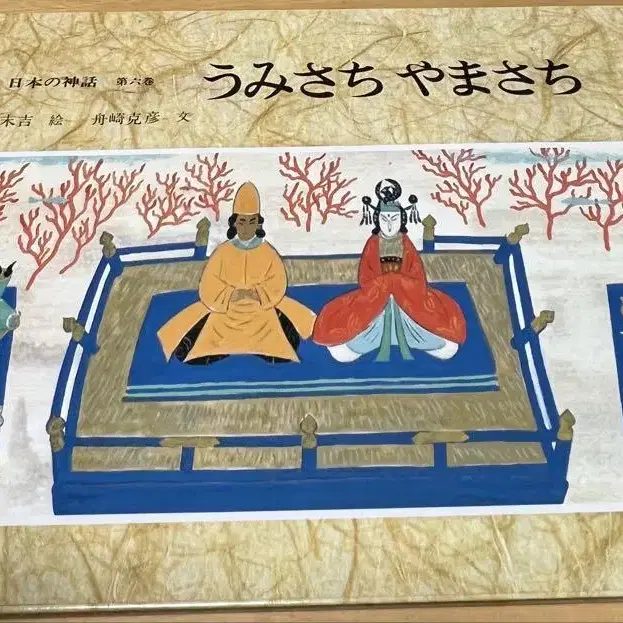 日本の神話 第六巻 うみさち やまさち
末吉 絵 舟崎克彦 文